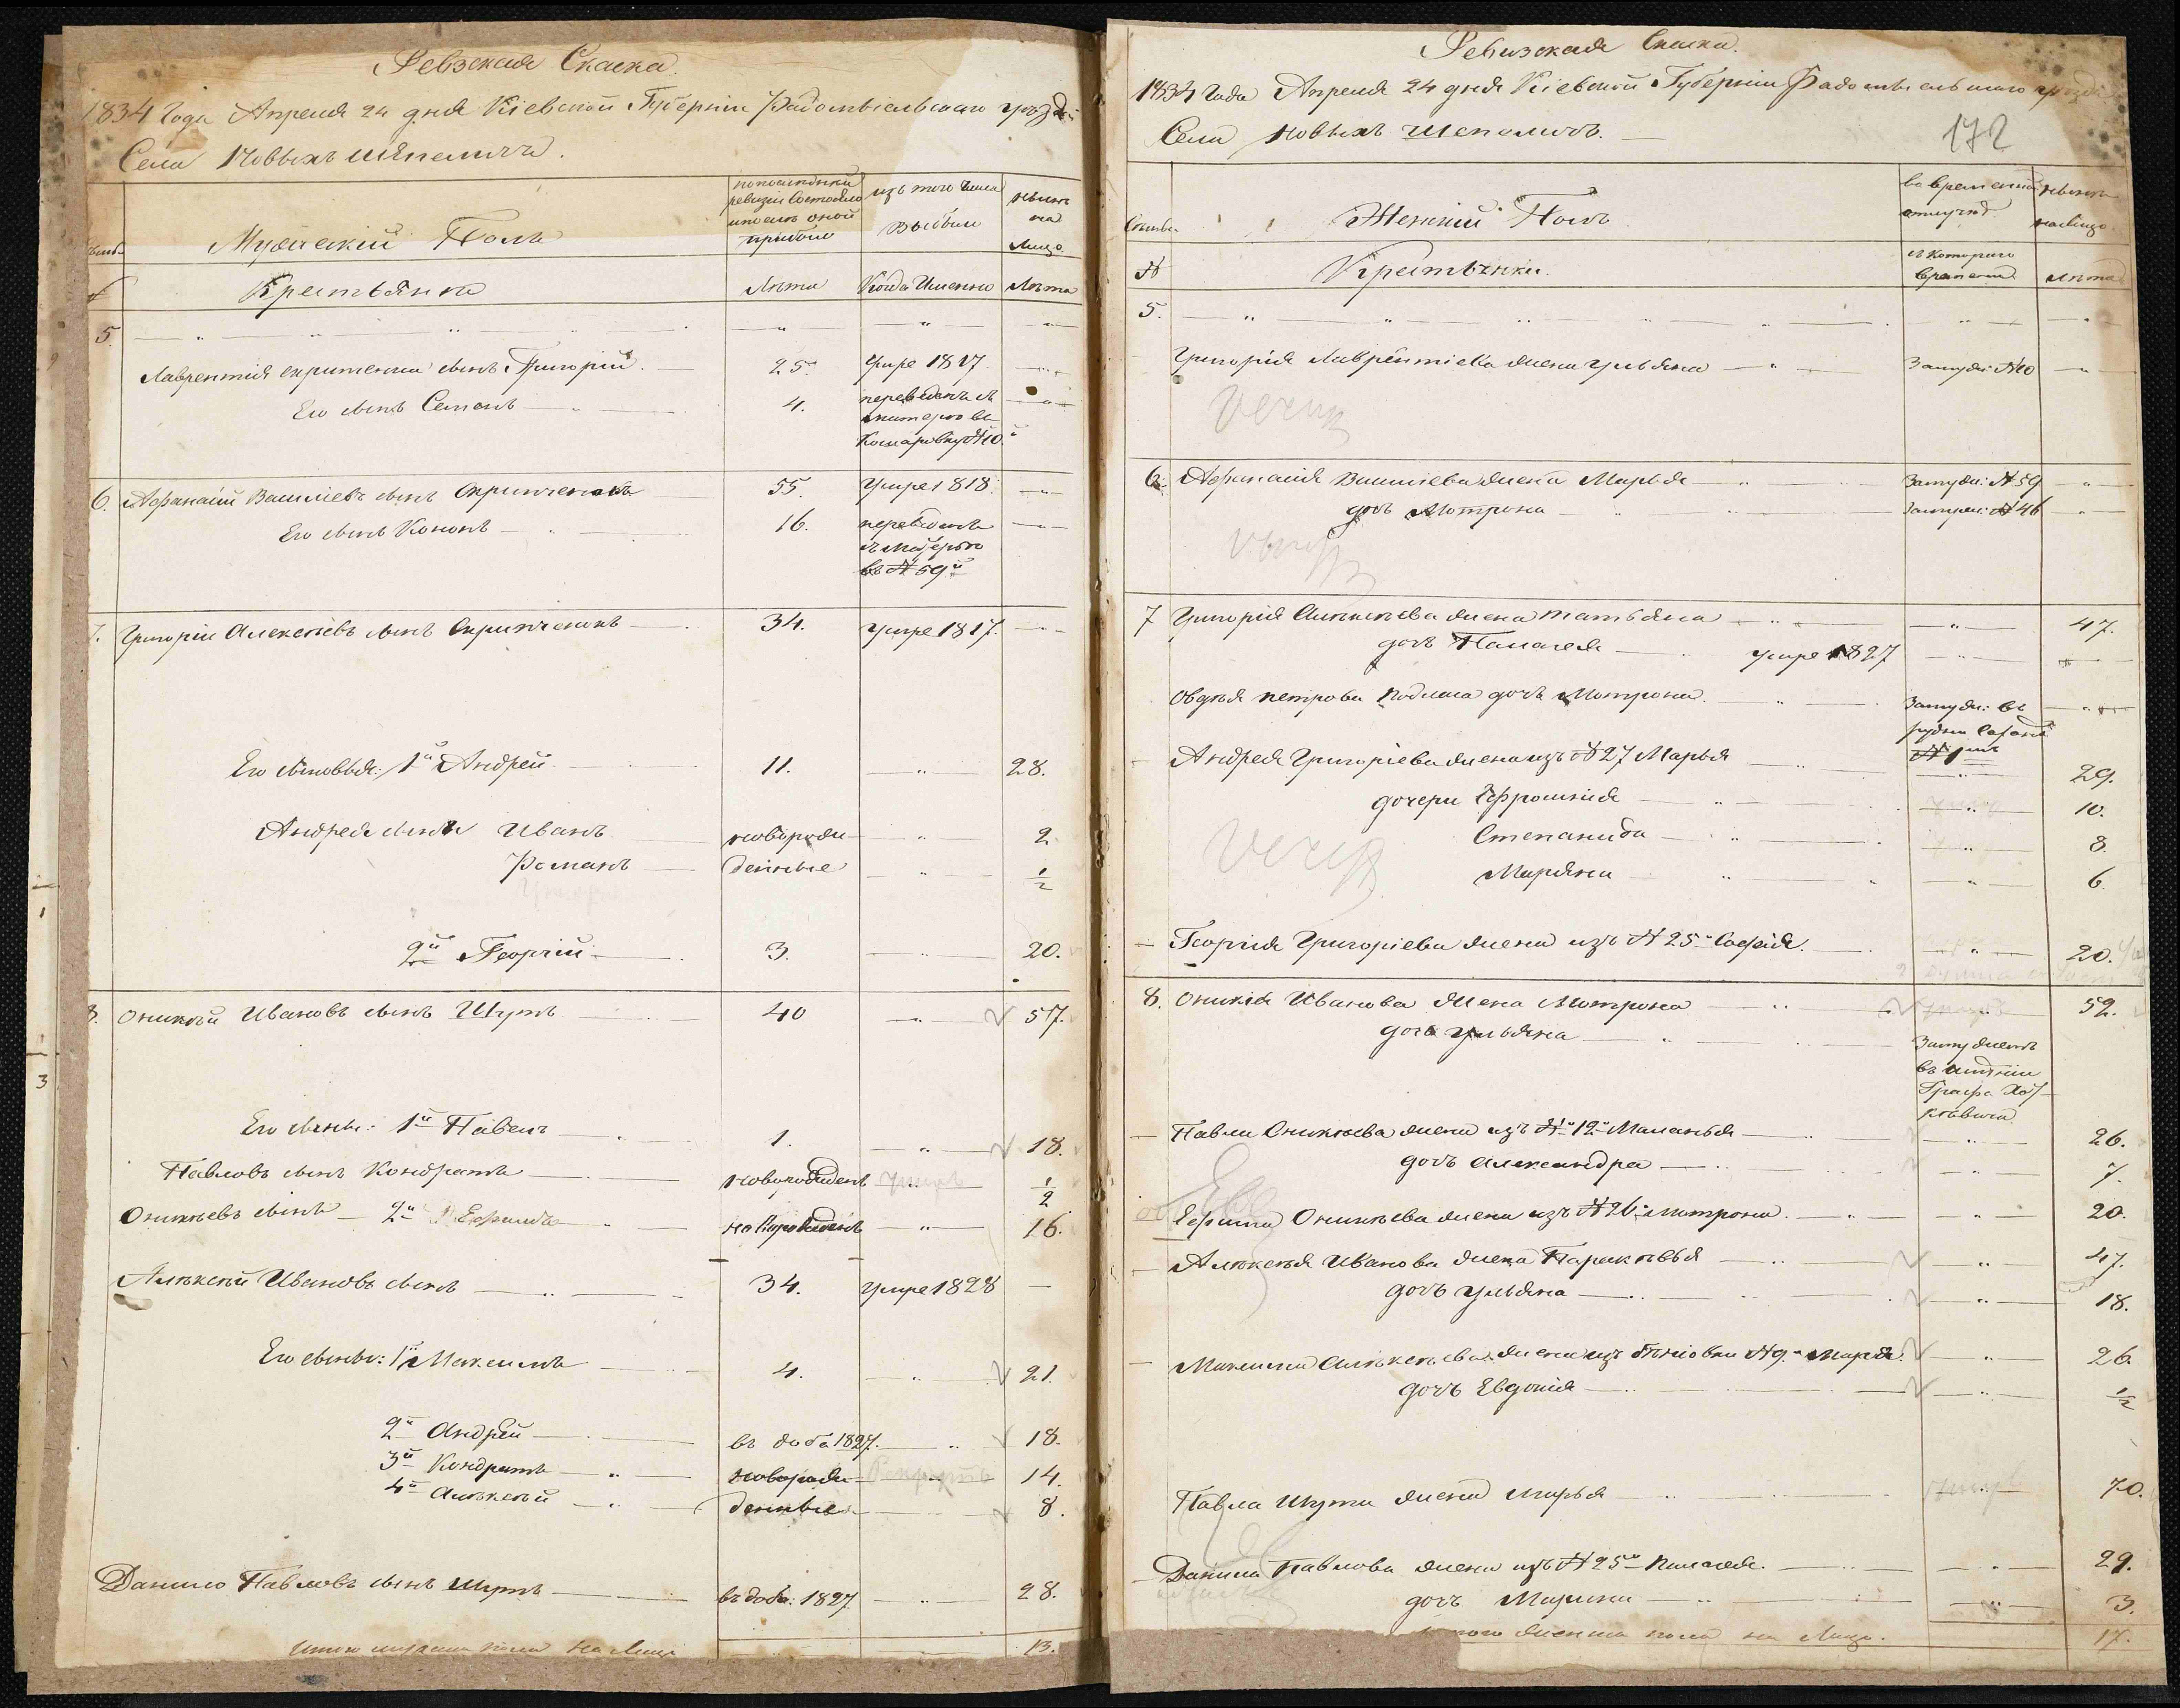 Ревзская Сказка.
1834 Года Апреля 24 дня Кіевской Губерніи Радомысльскаго уѣзда
Села Новыхъ Шепеличъ.
Мужескій Полъ
по последней ревизіи Состояло и после оной прибыло
изъ того Числа выбыли
нынѣ на Лицо
№
Крестьяне
Лѣта
Когда Именно
Лѣта
5.
Лаврентия сынъ Григорій. 25. Умре 1817.
Его сынъ Семенъ 4. переведенъ съ
матерью въ
№10.й
6. Афанасій Васильевъ сынъ 55. Умре 1818.
Его сынъ Кононъ 16. переведенъ
съ матерью
въ № 59й
7. Григорій Алексѣевъ сынъ 34. умре 1817.
Его сыновья: 1й Андрей 11. 28.
Андрея сынъ Иванъ новорож 2
Романъ денные ½
2й Георгій 3. 20.
8. Оникій Ивановъ сынъ Шутъ 40 57.
Его сыны: 1й Павелъ 1. 18.
Павловъ сынъ Кондратъ новорожденъ ½
Оникѣевъ сынъ 2й Ефимъ новорожденъ 16.
Алексѣй Ивановъ сынъ 34. умре 1828
Его сыны: 1й Максимъ 4. 21.
2й Андрей въ доба 1827. 18.
3й Кондратъ новорож 14.
4й Алексѣй денные 8.
Данило Павловъ сынъ Шутъ въ доба: 1827 28.
Итого мужеска пола на Лицо 13.
Ревизская Сказка.
1834 Года Апреля 24 дня Кіевской Губерніи Радомысльскаго уѣзда
Села Новыхъ Шепеличъ.
172
Семьи
Женскій Полъ
во временной отлучкѣ
нынѣ на лицо.
№
Крестьянки.
съ котораго времени
лѣта
5.
Григорія Лаврентіева жена Ульяна Замуж: №10
6. Афанасія Васильева жена Марья Замуж: №59
дочь Мотрона Замуж: №46
7 Григорія Алексѣева жена Татьяна 47.
дочь Палагея умре 1827
Овдѣя Петрова дочь Мотрона. Замуж: въ
рудни
№1
Андрея Григоріева жена изъ №27 Марья 29.
дочери Ефросинія 10.
Степанида 8.
Маріяна 6.
Георгія Григоріева жена изъ №25й Софія. 20.
8. Оникія Иванова Жена Мотрона 52.
дочь Ульяна Замужемъ
въ имѣніи
Графа Ход-
кѣвича
Павла Оникѣева жена изъ №12й Маланья 26.
дочь Александра 7.
Ефима Оникѣева жена изъ №26й Мотрона. 20.
Алексѣя Иванова жена Парасковья 47.
дочь Ульяна 18.
Максима Алексѣева жена изъ №9й Марья. 26
дочь Евдокія ½
Павла Шута жена Марья 70.
Данила Павлова жена изъ №25й Палагея. 29.
дочь Марина 3.
Итого женска пола на Лицо. 17.